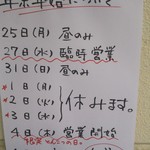 年末年始について
25日(月) 昼のみ
27日(水) 臨時営業
31日(日) 昼のみ
*1日(月)
*2日(火) 休みます。
*3日(水)
4日(木) 営業開始